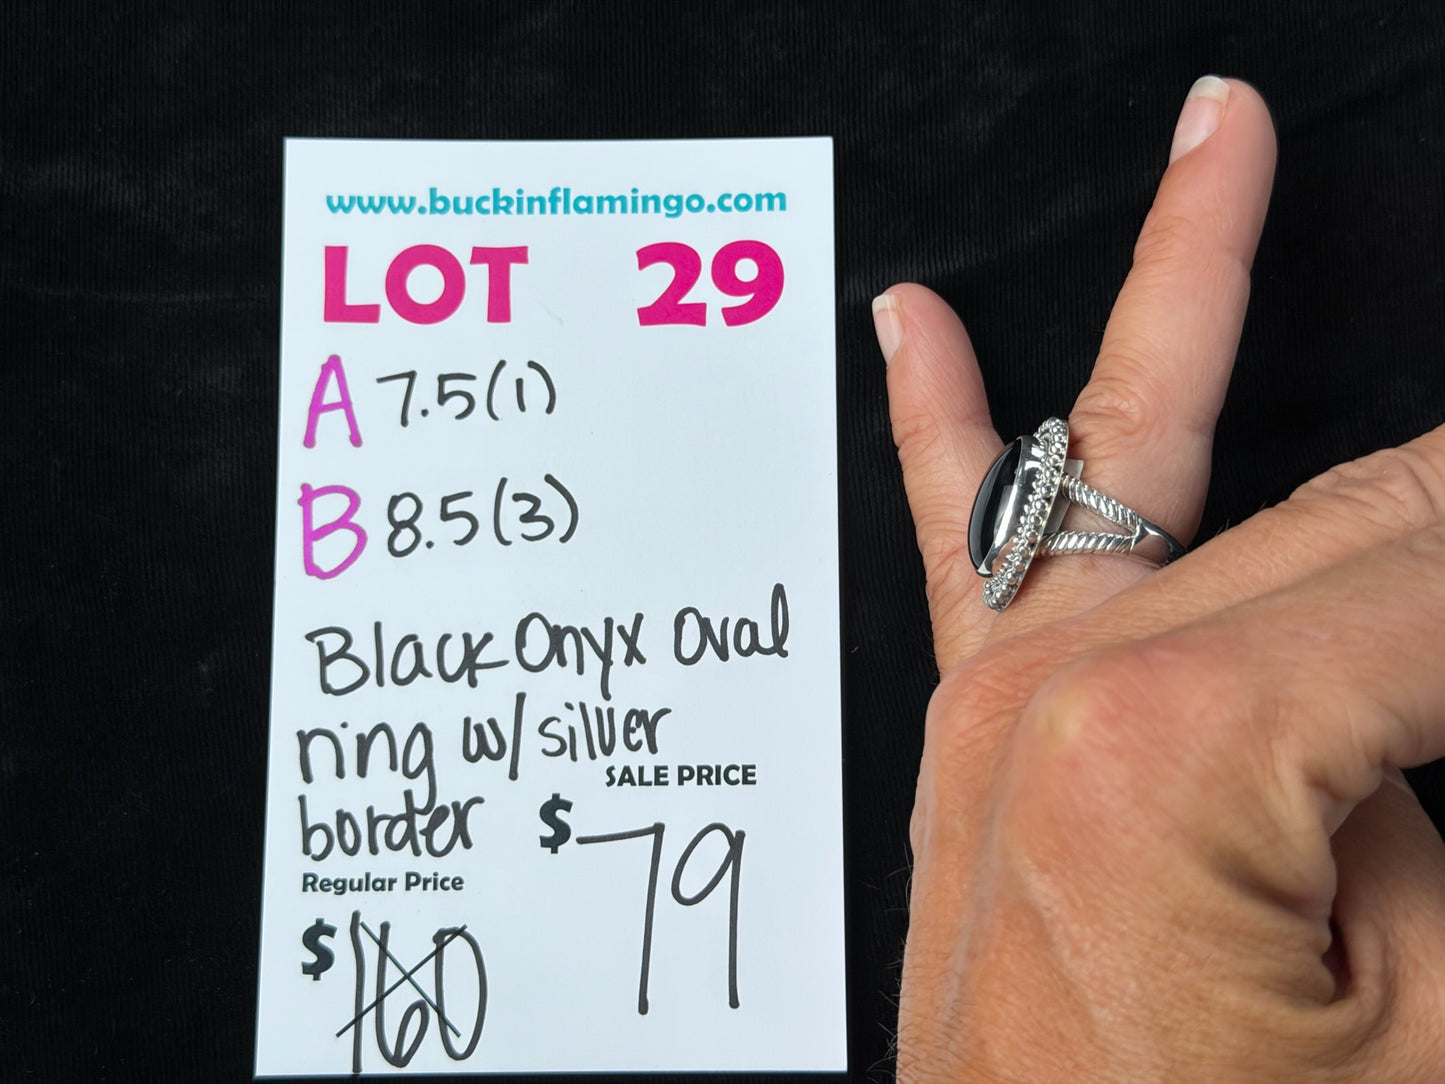 www.buckinflamingo.com
LOT 29
A 7.5(1)
B 8.5(3)
Black Onyx Oval
ring w/ silver
border
SALE PRICE
$79
Regular Price
$160